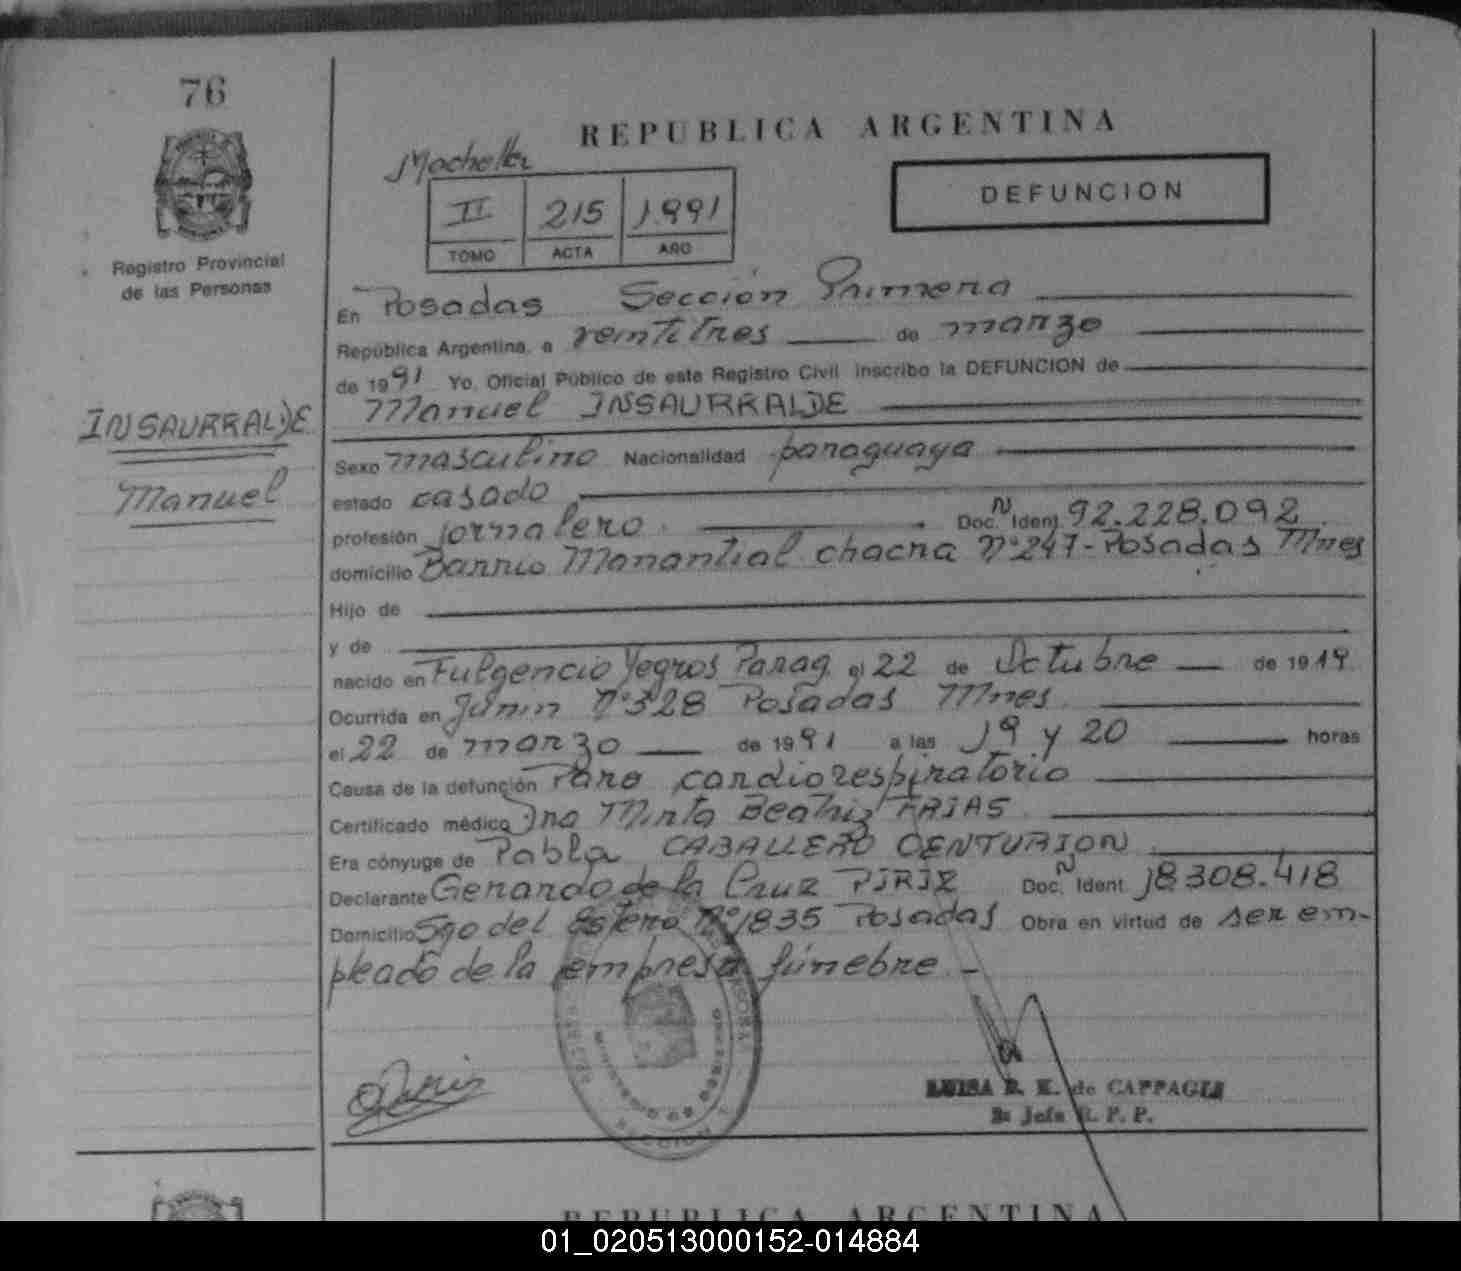 76
REPUBLICA ARGENTINA
DEFUNCION
II 215 1.991
TOMO ACTA AÑO
Registro Provincial
de las Personas
En Posadas Sección Primera
República Argentina, a veintitres de marzo
de 1991 Yo, Oficial Público de este Registro Civil inscribo la DEFUNCION de
Manuel INSAURRALDE
INSAURRALDE
Manuel
Sexo masculino Nacionalidad paraguaya
estado casado
profesión jornalero. Doc. N Ident. 92.228.092
domicilio Barrio Manantial chacra Nº247-Posadas Mnes
Hijo de
y de
nacido en Fulgencio Yegros Parag. el 22 de Octubre de 1919
Ocurrida en Junin Nº328 Posadas Mnes.
el 22 de marzo de 1991 a las 19 y 20 horas
Causa de la defunción Paro cardiorespiratorio
Certificado médico Dra Mirta Beatriz FRIAS
Era cónyuge de Pabla CABALLERO CENTURION
Declarante Gerardo de la Cruz PIRIZ Doc. N Ident. 18308.418
Domicilio Sgo del Estero Nº1835 Posadas Obra en virtud de ser em-
pleado de la empresa fúnebre.-
de CAPPAGLI
Jefe R. P. P.
REPUBLICA ARGENTINA
01_020513000152-014884